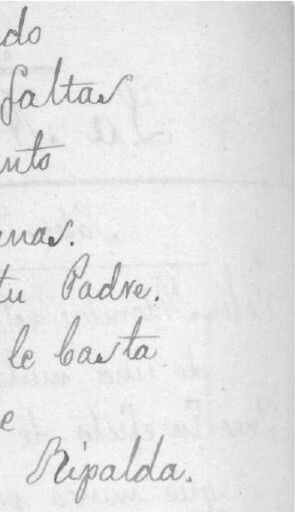 do
faltas
nto
nas.
tu Padre.
le basta
e
Ripalda.